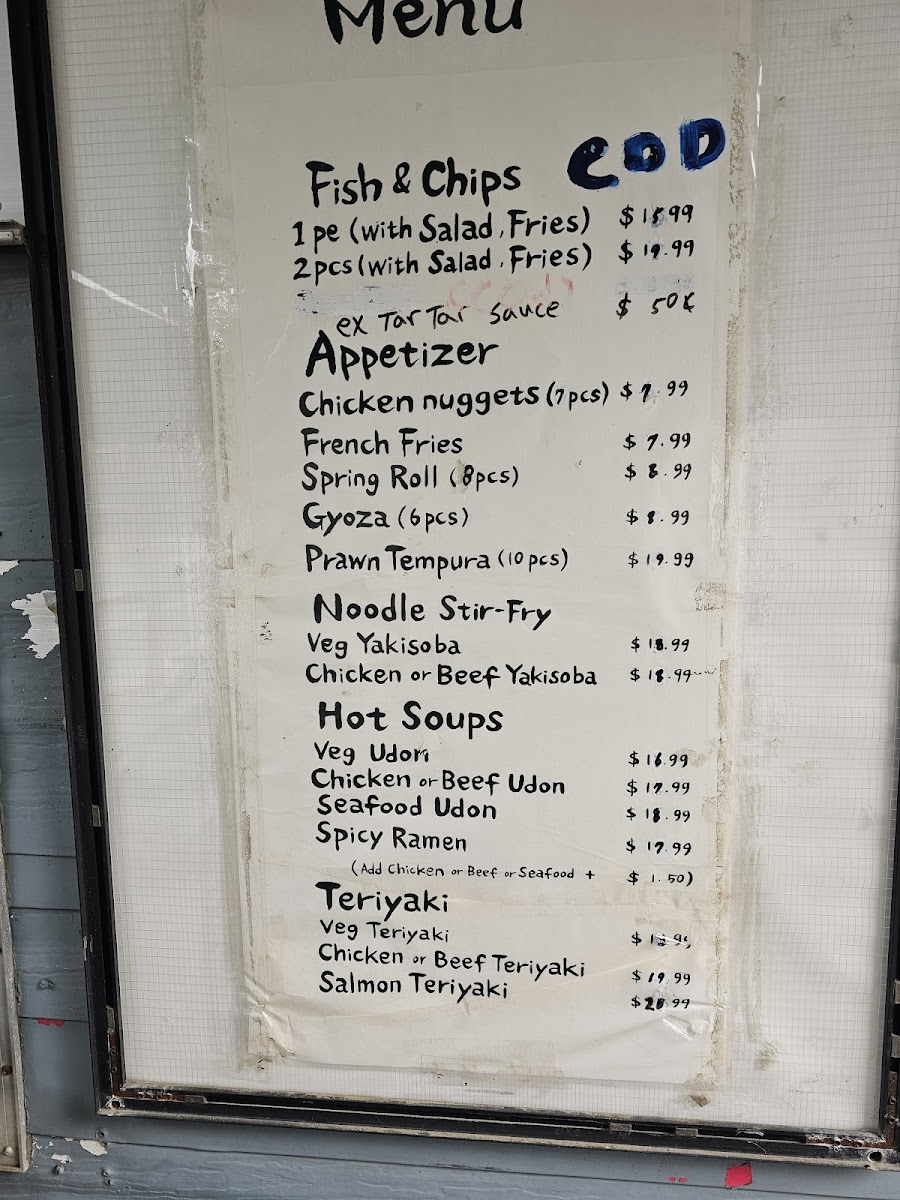 Menu
COD
Fish & Chips
1 pe (with Salad, Fries) $15.99
2pcs (with Salad, Fries) $19.99
ex Tar Tar Sauce $ 50¢
Appetizer
Chicken nuggets (7pcs) $7.99
French Fries $7.99
Spring Roll (8pcs) $8.99
Gyoza (6pcs) $8.99
Prawn Tempura (10pcs) $19.99
Noodle Stir-Fry
Veg Yakisoba $18.99
Chicken or Beef Yakisoba $18.99
Hot Soups
Veg Udon $16.99
Chicken or Beef Udon $17.99
Seafood Udon $18.99
Spicy Ramen $17.99
(Add Chicken or Beef or Seafood + $1.50)
Teriyaki
Veg Teriyaki
Chicken or Beef Teriyaki $19.99
Salmon Teriyaki $20.99